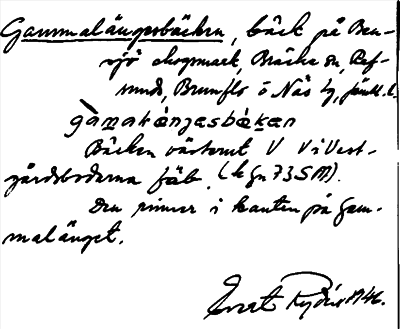 Gammalängesbäcken, bäck på Ben-
sjö skogmark, Bräcke sn, Ref-
sunds, Brunflo o Näs tg, Jämtl. l.
gàmaḷáŋʒesbɛ́ḵen
Bäcken västerut V
gårdsbodarna fäb. (
Den rinner i kanten på Gam-
malänget.
Evert Rydén 1946.